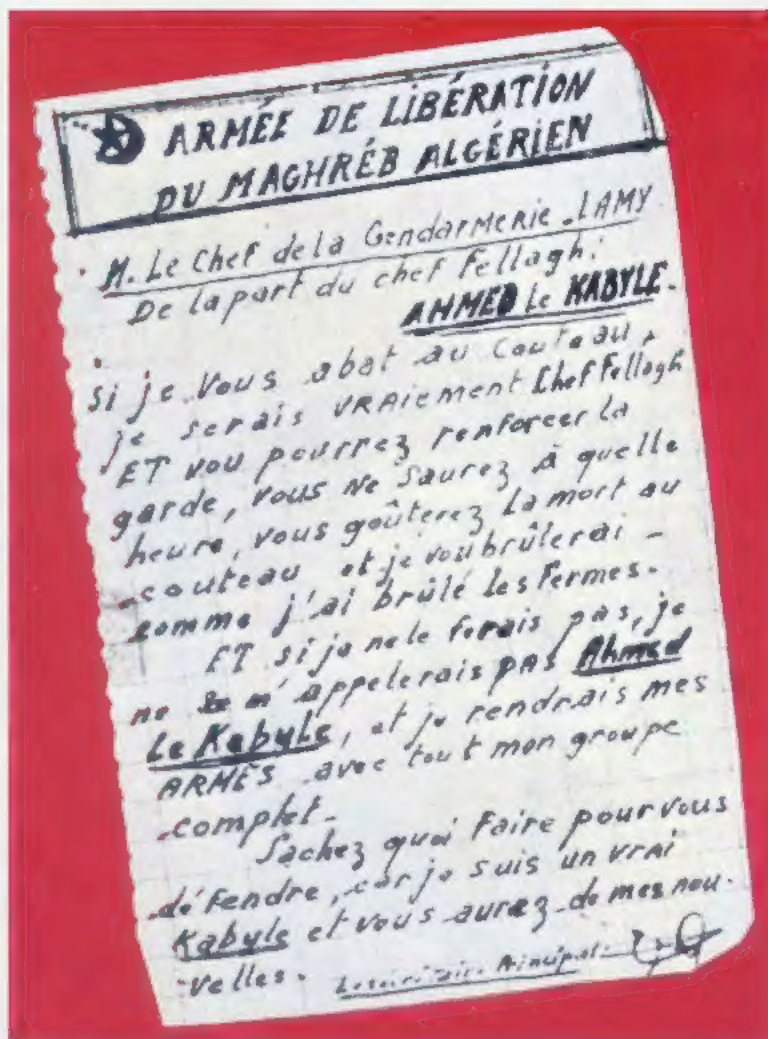 ARMÉE DE LIBÉRATION
DU MAGHRÉB ALGÉRIEN
M. Le Chef de la Gendarmerie LAMY
De la part du chef Fellagh:
AHMED Le KABYLE.
Si je vous abat au couteau,
je serais VRAiement Chef Fellagh
ET vou pourrez renforcer la
garde, vous Ne Saurez à quelle
heure, vous goûterez La mort au
couteau et je vou brûlerai -
comme j'ai brûlé Les Fermes.
ET si je ne le ferais pas, je
ne m'appelerais pas Ahmed
Le Kabyle, et je rendrais mes
ARMES avec tout mon groupe
complet.
Sachez quoi Faire pour vous
défendre, car je suis un vrai
Kabyle et vous aurez de mes nou-
velles.
Le secrétaire Principal: